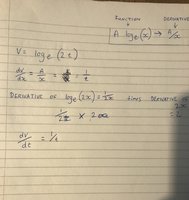 FUNCTION DERIVATIVE
A loge(x) → A/x
V = loge(2t)
dv/dx = A/x = = 1/t
DERIVATIVE OF loge(2x) = 1/2x times DERIVATIVE OF 2x = 2
1/2t × 2
dv/dt = 1/t